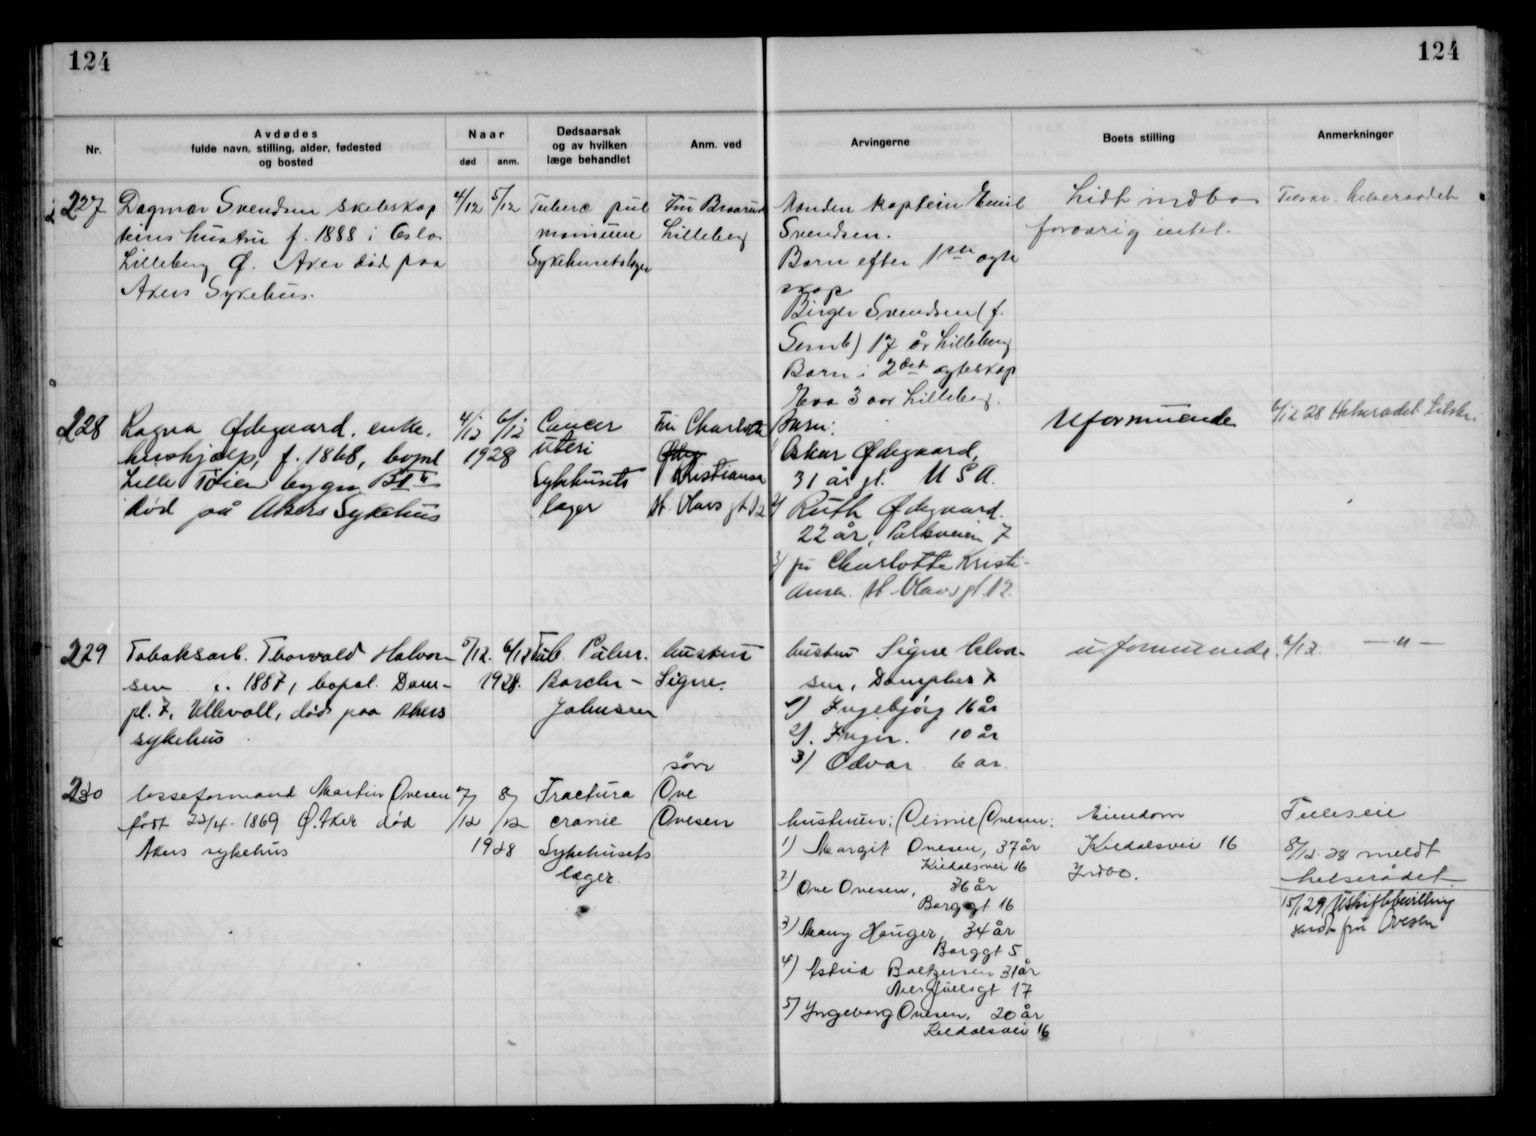 124
124
Nr.
Avdødes
fulde navn, stilling, alder, fødested
og bosted
Naar
død
anm.
Dødsaarsak
og av hvilken
læge behandlet
Anm. ved
Arvingerne
Boets stilling
Anmerkninger
227
Dagmar Svendsen
hustru f. 1888 i Oslo
Lilleberg Ø. Aker død paa
Akers Sykehus.
4/12 5/12
Tuberc pul
Sykehuslæger
Fru
Lilleberg
Manden kaptein Emil
Svendsen.
Barn efter 1ste ægte
skap
Birger Svendsen (f.
17 år Lilleberg
Barn i 2det ægteskap
Eva 3 aar Lilleberg.
Lidt indbo
forøvrig intet.
228
Ragna Ødegaard, enke,
hushjælp, f. 1868, bopæl
Lille Tøien
Død på Akers Sykehus
4/12 6/12
1928
Cancer
uteri
Sykehusets
læger
Fru Charlotte
Kristiansen
St. Olavs gt 12
Barn:
1) Oskar Ødegaard,
31 år gl. USA.
2) Ruth Ødegaard.
22 år, 7
3) fru Charlotte Kristi-
ansen. St. Olavs gt. 12.
Uformuende
6/12 28 Helserådet tilskr.
229
Tobaksarb. Thorvald Halvor-
sen f. 1887, bopæl. Dam-
pl. 7, Ullevoll, død paa Akers
sykehus
5/12. 6/12
1928.
Tub. Pulm.
Borchr-
Johnsen
hustru
Signe.
hustru Signe Halvor-
sen, Dampladsen 7
1) Ingebjørg 16 år
2). Inger. 10 år
3) Odvar 6 ar.
uformuende
6/12. — " —
230
losseformand Martin Ovesen
født 22/4. 1869 Ø. Aker død
Akers sykehus
7/12 8/12
1928
Fractura
cranie
Sykehusets
læger.
sønn
Ove
Ovesen
hustruen: Ovesen:
1) Margit Ovesen, 37 år
Kildalsvei 16
2) Ove Ovesen, 36 år
Borggt 16
3) Hauger, 34 år
Borggt 5
4) Astrid 31 år
17
5) Ingeborg Ovesen, 20 år
Kildalsvei 16
Eiendom
Kildalsvei 16
Indbo.
8/12. 28 meldt
helserådet
15/1 29 Uskiftebevilling
sendt fru Ovesen